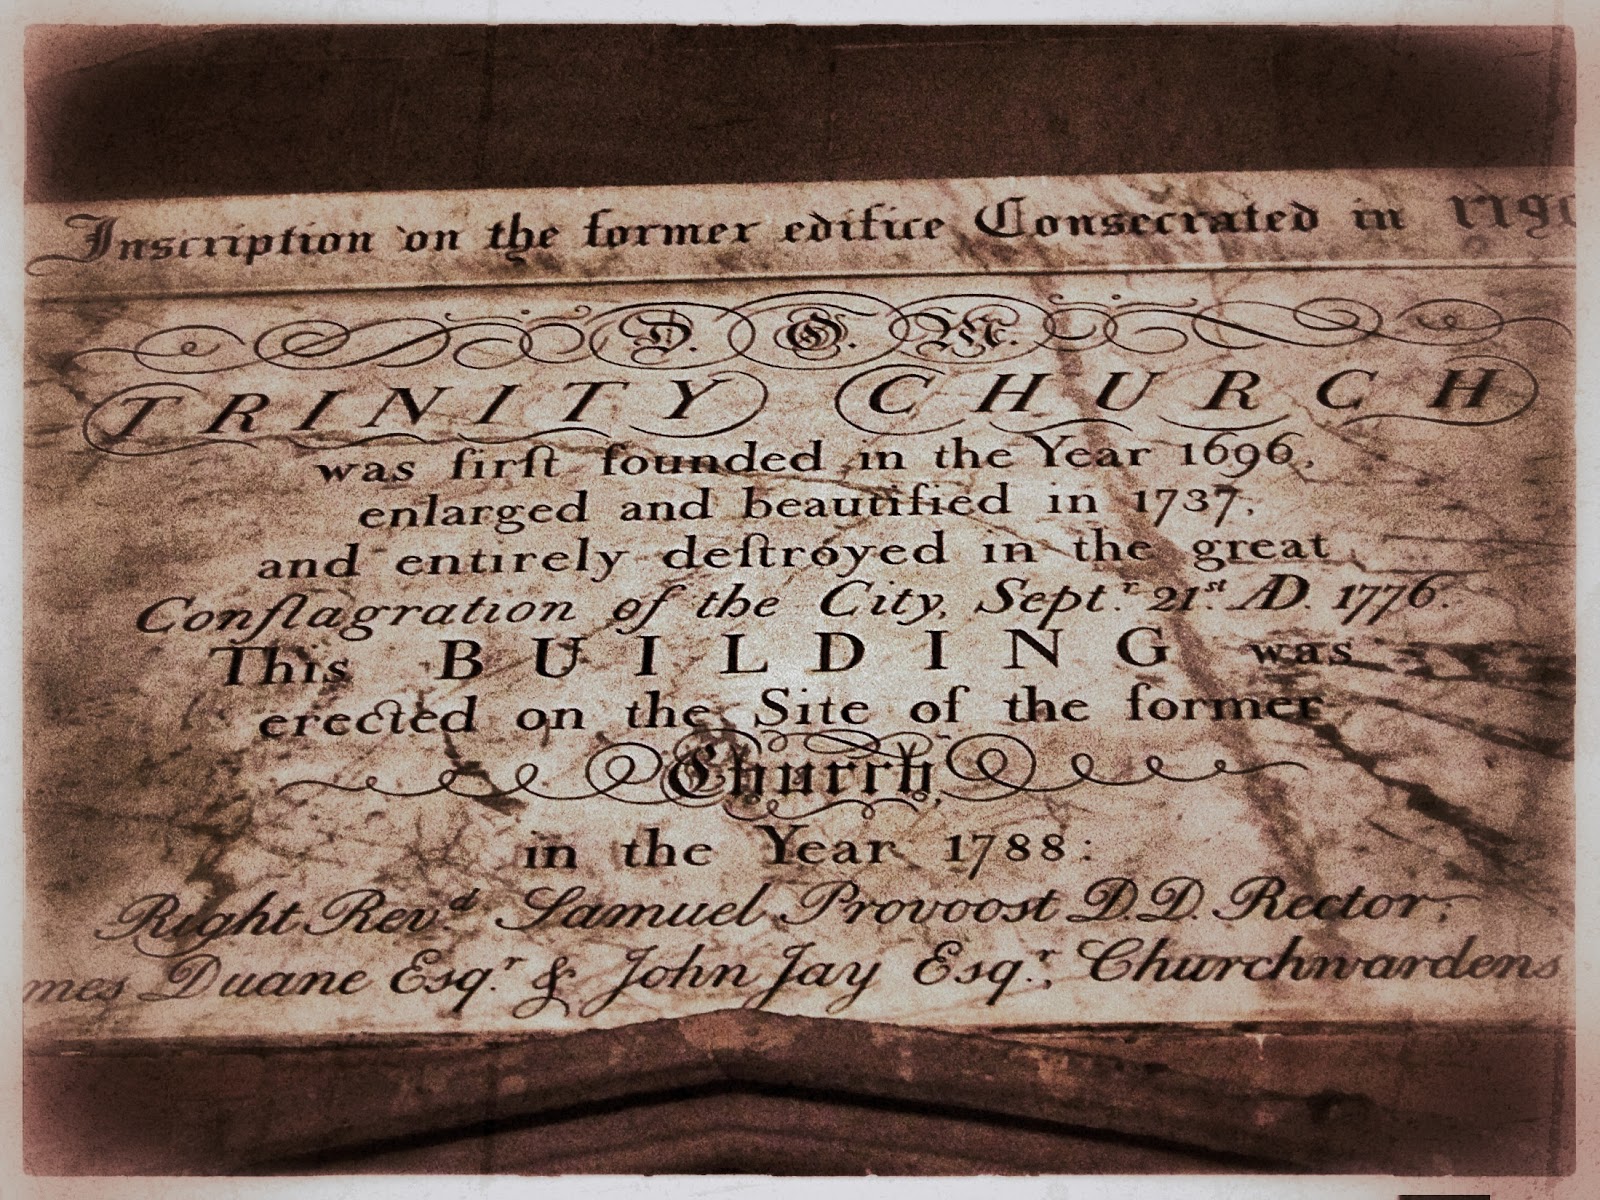 Inscription on the former edifice Consecrated in 1790
D. O. M.
TRINITY CHURCH
was firſt founded in the Year 1696,
enlarged and beautified in 1737,
and entirely deſtroyed in the great
Conflagration of the City, Sept.r 21st. AD. 1776.
This BUILDING was
erected on the Site of the former
Church,
in the Year 1788:
Right Rev.d Samuel Provoost D.D. Rector;
mes Duane Esq.r & John Jay Esq.r, Churchwardens